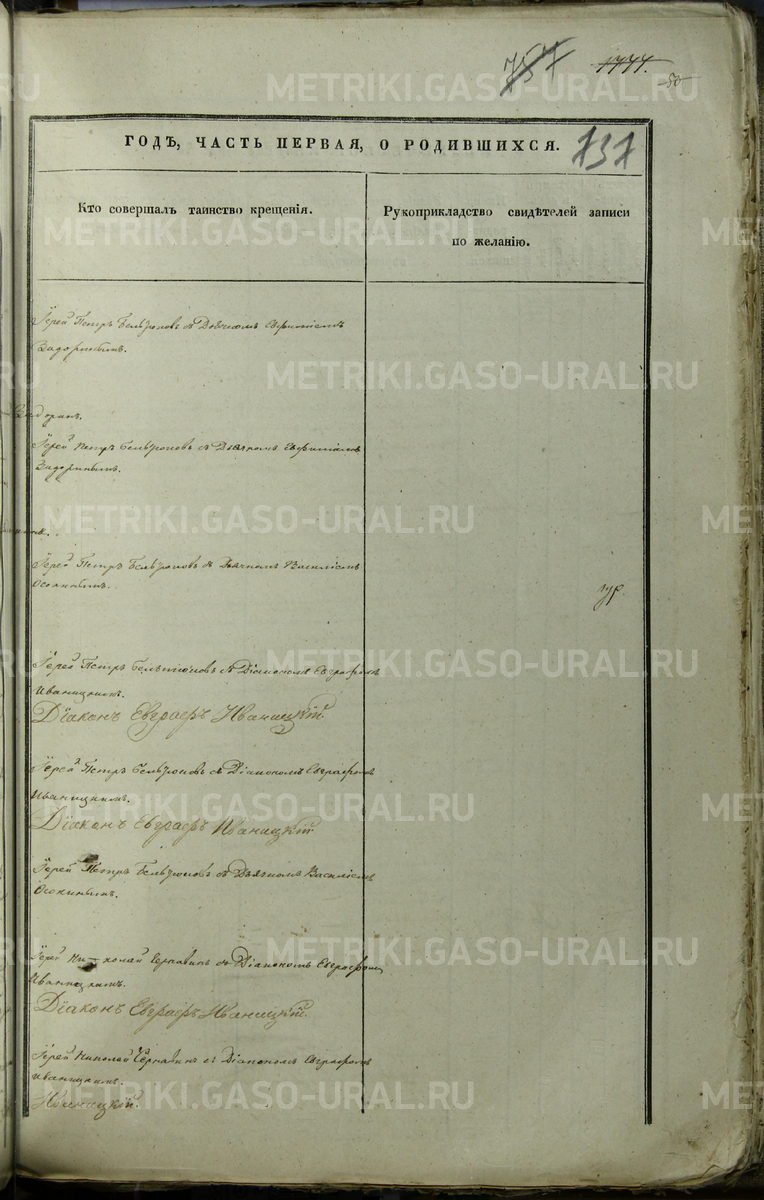 757 1444.
50
ГОДЪ, ЧАСТЬ ПЕРВАЯ, О РОДИВШИХСЯ. 737
Кто совершалъ таинство крещенія.
Рукоприкладство свидѣтелей записи
по желанію.
Іерей Петръ съ Дьячкомъ Евфиміемъ
Задоринымъ.
Іерей Петръ съ Дьячкомъ Евфиміемъ
Задоринымъ.
Іерей Петръ съ Дьячкомъ Василіемъ
Осокинымъ.
Іерей Петръ съ Діакономъ Евграфомъ
Иваницкимъ.
Діаконъ Евграфъ Иваницкій.
Іерей Петръ съ Діакономъ Евграфомъ
Иваницкимъ.
Діаконъ Евграфъ Иваницкій
Іерей Петръ съ Дьячкомъ Василіемъ
Осокинымъ.
Іерей Николай съ Діакономъ Евграфомъ
Иваницкимъ.
Діаконъ Евграфъ Иваницкій.
Іерей Николай съ Діакономъ Евграфомъ
Иваницкимъ.
Иваницкій.
METRIKI.GASO-URAL.RU